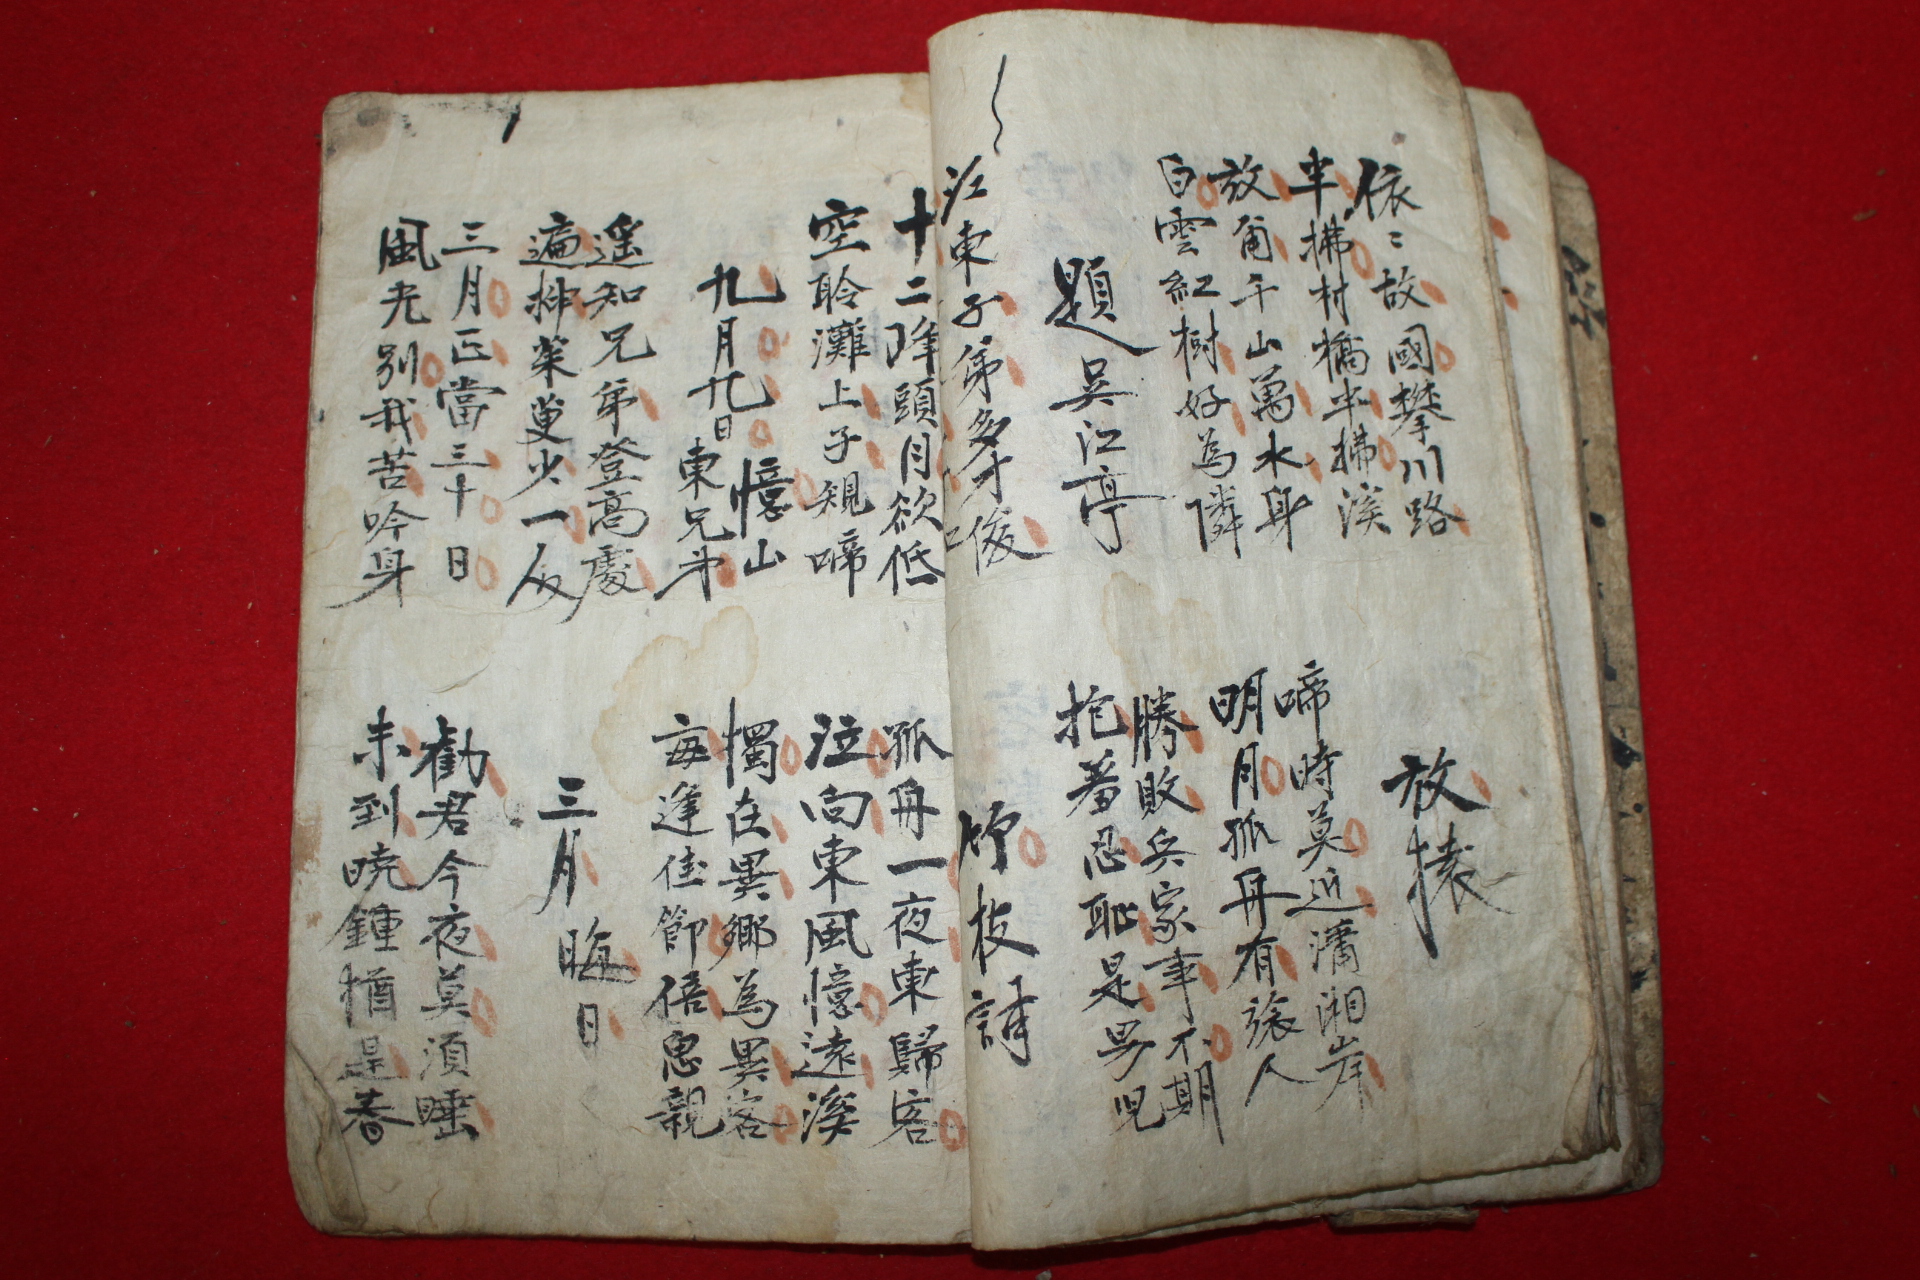 依〻故國攀川路
半拂村橋半拂溪
放猿
放爾千山萬水身
白雲紅樹好為隣
啼時莫近瀟湘岸
明月孤舟有旅人
題吳江亭
勝敗兵家事不期
抱羞忍恥是男兒
江東子弟多才俊
竹枝請
十二峰頭月欲低
空聆灘上子規啼
孤舟一夜東歸客
泣向東風憶遠溪
九月九日憶山
東兄弟
獨在異鄉為異客
每逢佳節倍思親
遙知兄弟登高處
遍挿茱叟少一人
三月晦日
三月正當三十日
風光別我苦吟身
勸君今夜莫須睡
未到曉鍾猶是春